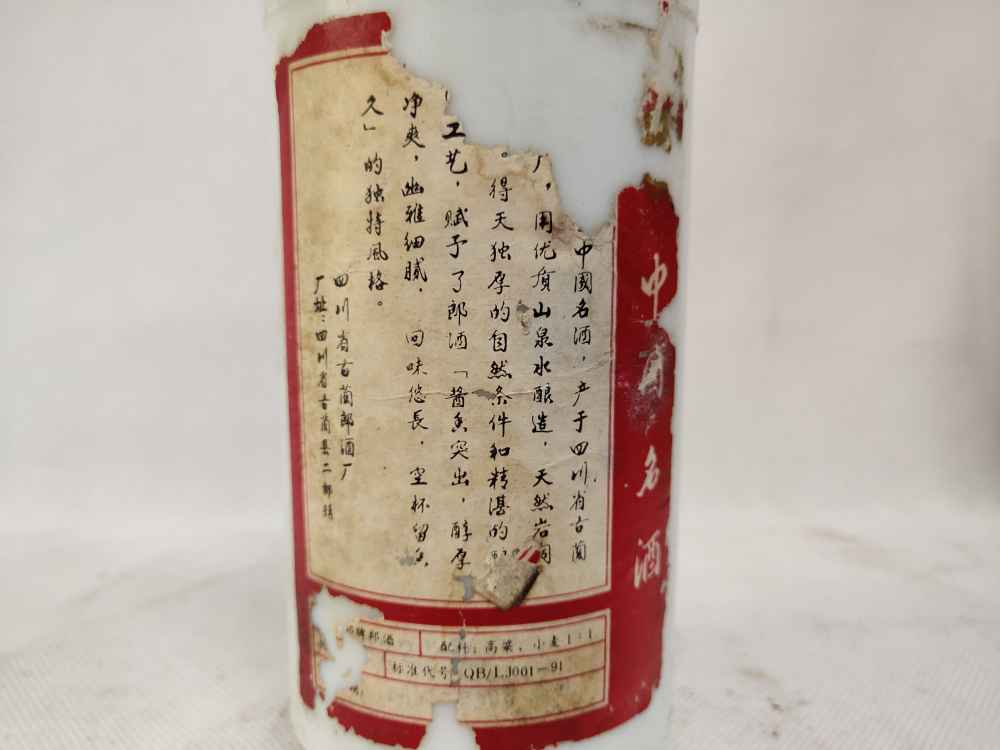 中國名酒
中國名酒，产于四川省古蔺
厂，用优质山泉水酿造，天然岩洞
。得天独厚的自然条件和精湛的
工艺，赋予了郎酒「酱香突出，醇厚
净爽，幽雅细腻，回味悠長，空杯留香
久」的独特風格。
四川省古蔺郎酒厂
厂址：四川省古蔺县二郎镇
牌郎酒 配料：高粱，小麦1：1
标准代号 QB/LJ001—91